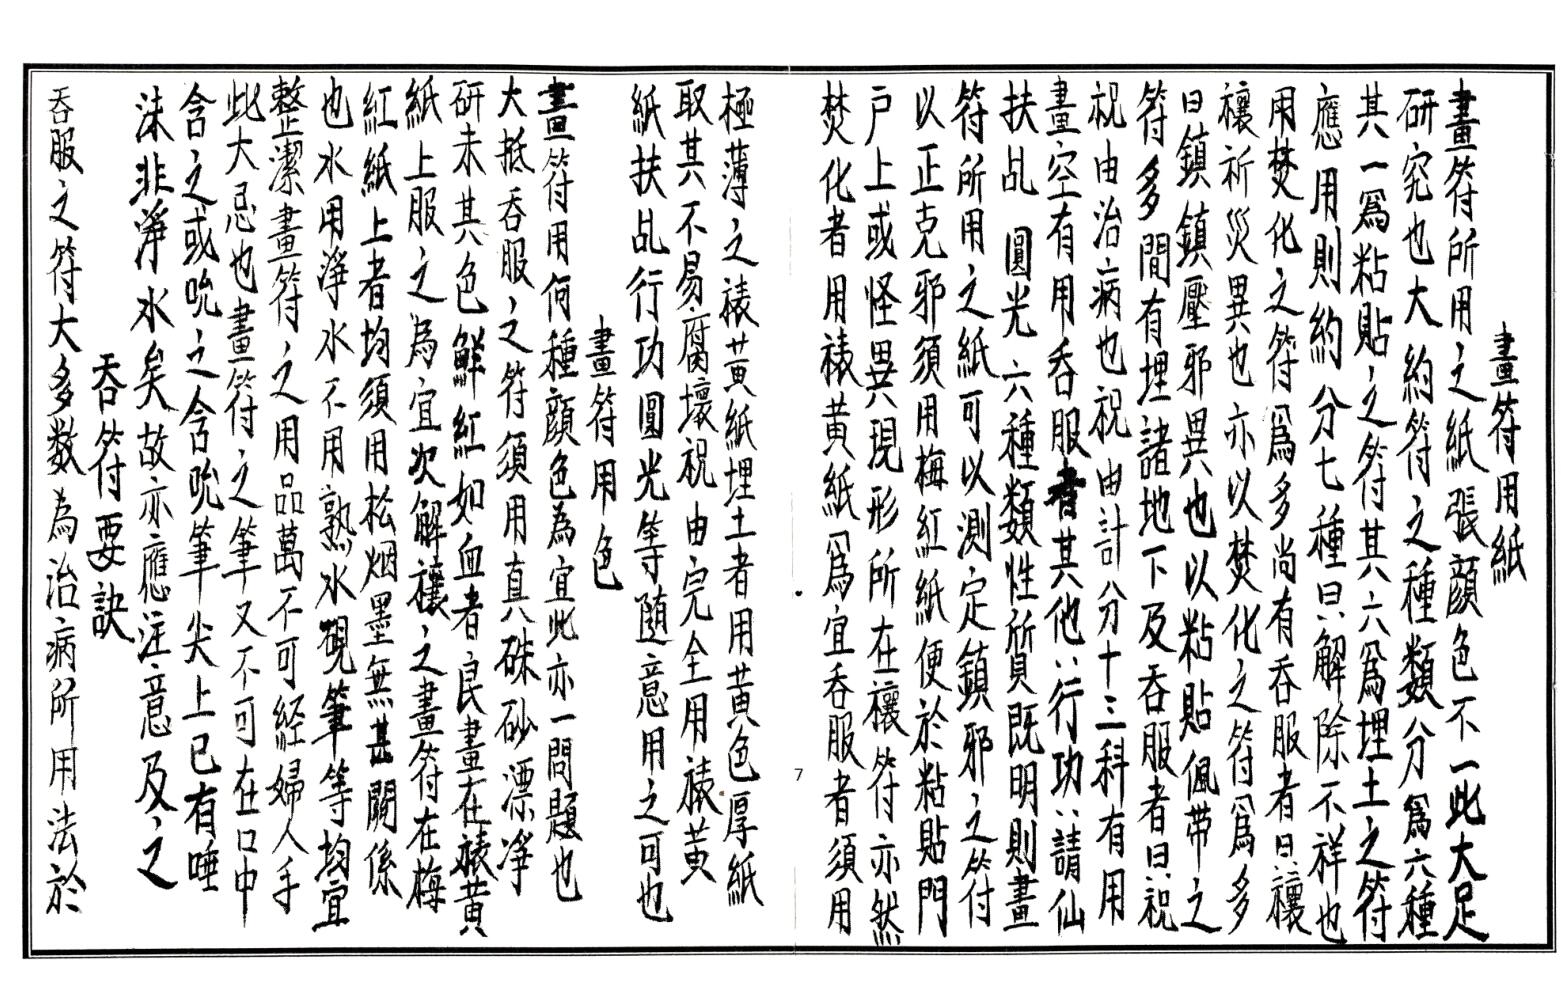 畫符用紙
畫符所用之紙張顏色不一此大足
研究也大約符之種類分為六種
其一為粘貼之符其六為埋土之符
應用則約分七種曰解除不祥也
用焚化之符為多尚有吞服者曰禳
禳祈災異也亦以焚化之符為多
曰鎮鎮壓邪異也以粘貼佩帶之
符多間有埋諸地下及吞服者曰祝
祝由治病也祝由計分十三科有用
畫空有用吞服者其他行功請仙
扶乩 圓光六種類性質既明則畫
符所用之紙可以測定鎮邪之符
以正克邪須用梅紅紙便於粘貼門
戶上或怪異現形所在禳符亦然
焚化者用裱黃紙為宜吞服者須用
7
極薄之裱黃紙埋土者用黃色厚紙
取其不易腐壞祝由完全用裱黃
紙扶乩行功圓光等隨意用之可也
畫符用色
畫符用何種顏色為宜此亦一問題也
大抵吞服之符須用真硃砂漂淨
研末其色鮮紅如血者良畫在裱黃
紙上服之為宜次解禳之畫符在梅
紅紙上者均須用松烟墨無甚關係
也水用淨水不用熟水硯筆等均宜
整潔畫符之用品萬不可經婦人手
此大忌也畫符之筆又不可在口中
含之或吮之含吮筆尖上已有唾
沫非淨水矣故亦應注意及之
吞符要訣
吞服之符大多数為治病所用法於